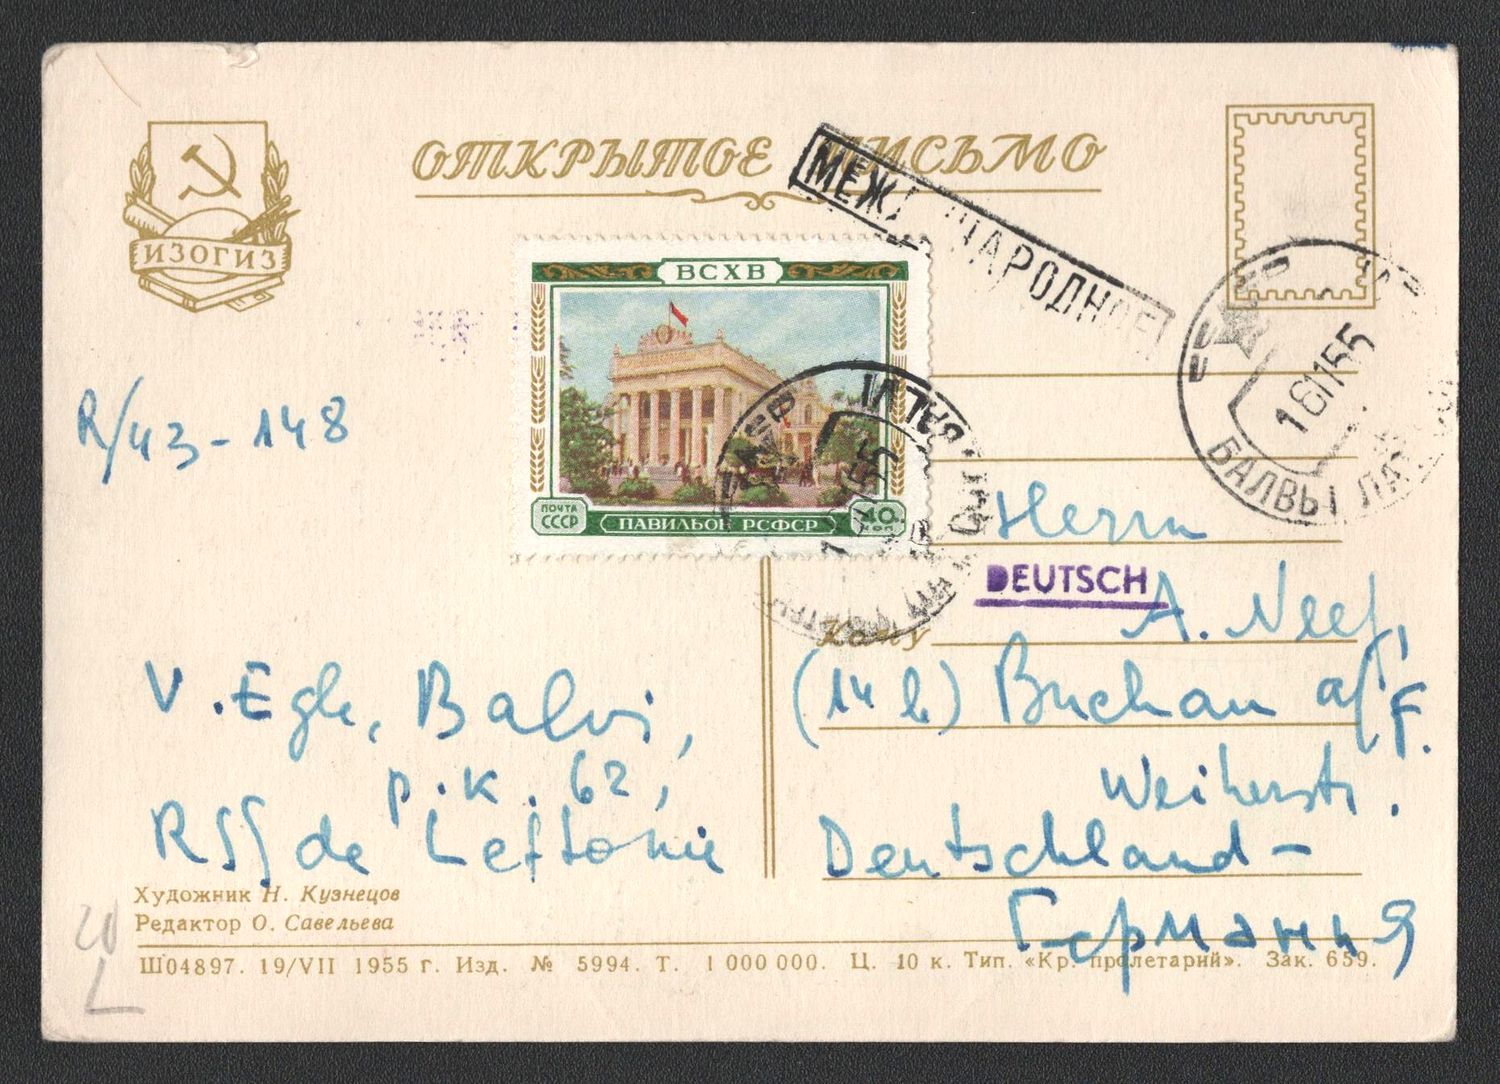 ОТКРЫТОЕ ПИСЬМО
ИЗОГИЗ
МЕЖДУНАРОДНОЕ
ВСХВ
ПОЧТА
СССР
ПАВИЛЬОН РСФСР
40
коп
BALVI
16 11 55
БАЛВЫ
R/43-148
Herrn
DEUTSCH
Кому
A. Neef,
(14b) Buchau a/F.
Weiherstr.
Deutschland-
Германия
V. Egle, Balvi,
p.k. 62,
RSS de Lettonie
Художник Н. Кузнецов
Редактор О. Савельева
Ш04897. 19/VII 1955 г. Изд. № 5994. Т. 1 000 000. Ц. 10 к. Тип. «Кр. пролетарий». Зак. 659.
20